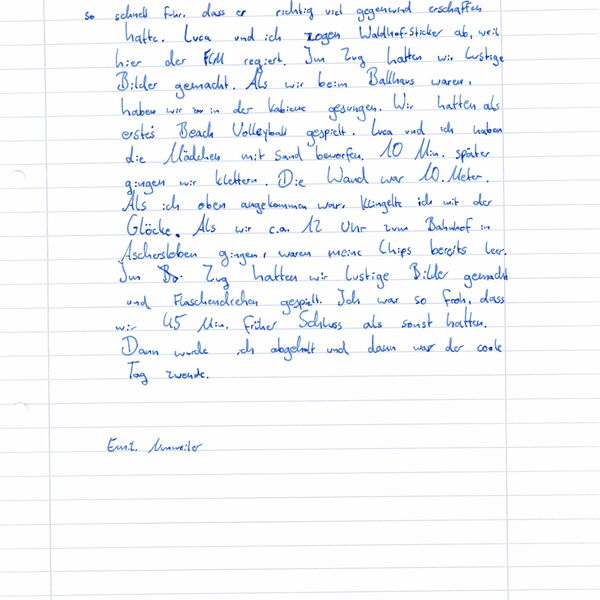 so schnell fuhr, dass er richtig viel gegenwind erschaffen
hatte. Luca und ich zogen Waldhof-Sticker ab, weil
hier der FCM regiert. Im Zug hatten wir lustige
Bilder gemacht. Als wir beim Ballhaus waren,
haben wir in der Kabiene gesungen. Wir hatten als
erstes Beach Volleyball gespielt. Luca und ich haben
die Mädchen mit Sand beworfen. 10 Min. später
gingen wir klettern. Die Wand war 10. Meter.
Als ich oben angekommen war, klingelte ich mit der
Glöcke. Als wir c.a. 12 Uhr zum Bahnhof in
Aschersleben gingen, waren meine Chips bereits leer.
Im Zug hatten wir lustige Bilder gemacht
und Flaschendrehen gespielt. Ich war so froh, dass
wir 45 Min. früher Schluss als sonst hatten.
Dann wurde ich abgeholt und dann war der coole
Tag zuende.